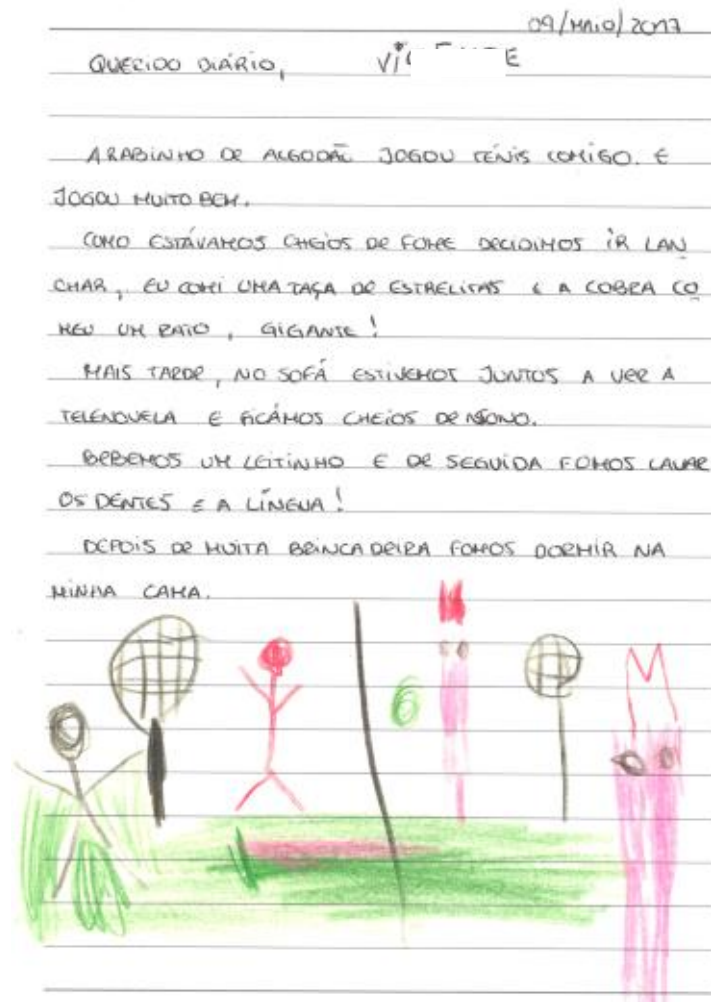 09/MAIO/2017
QUERIDO DIÁRIO,
A RABINHO DE ALGODÃO JOGOU TÉNIS COMIGO. E
JOGOU MUITO BEM.
COMO ESTÁVAMOS CHEIOS DE FOME DECIDIMOS IR LAN
CHAR, EU COMI UMA TAÇA DE ESTRELITAS E A COBRA CO
MEU UM RATO, GIGANTE!
MAIS TARDE, NO SOFÁ ESTIVEMOS JUNTOS A VER A
TELENOVELA E FICÁMOS CHEIOS DE SONO.
BEBEMOS UM LEITINHO E DE SEGUIDA FOMOS LAVAR
OS DENTES E A LÍNGUA!
DEPOIS DE MUITA BRINCADEIRA FOMOS DORMIR NA
MINHA CAMA.